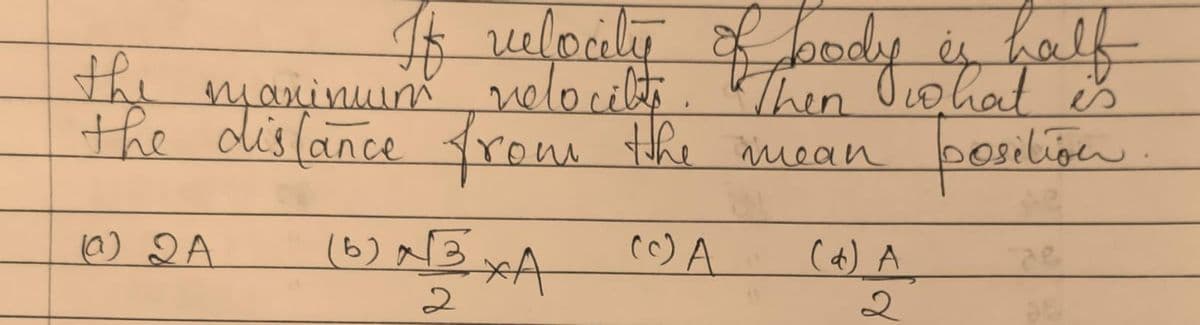 If velocity of body is half
the maximum velocity. Then what is
the distance from the mean position.
(a) 2A (b) √3/2 ×A (c) A (d) A/2